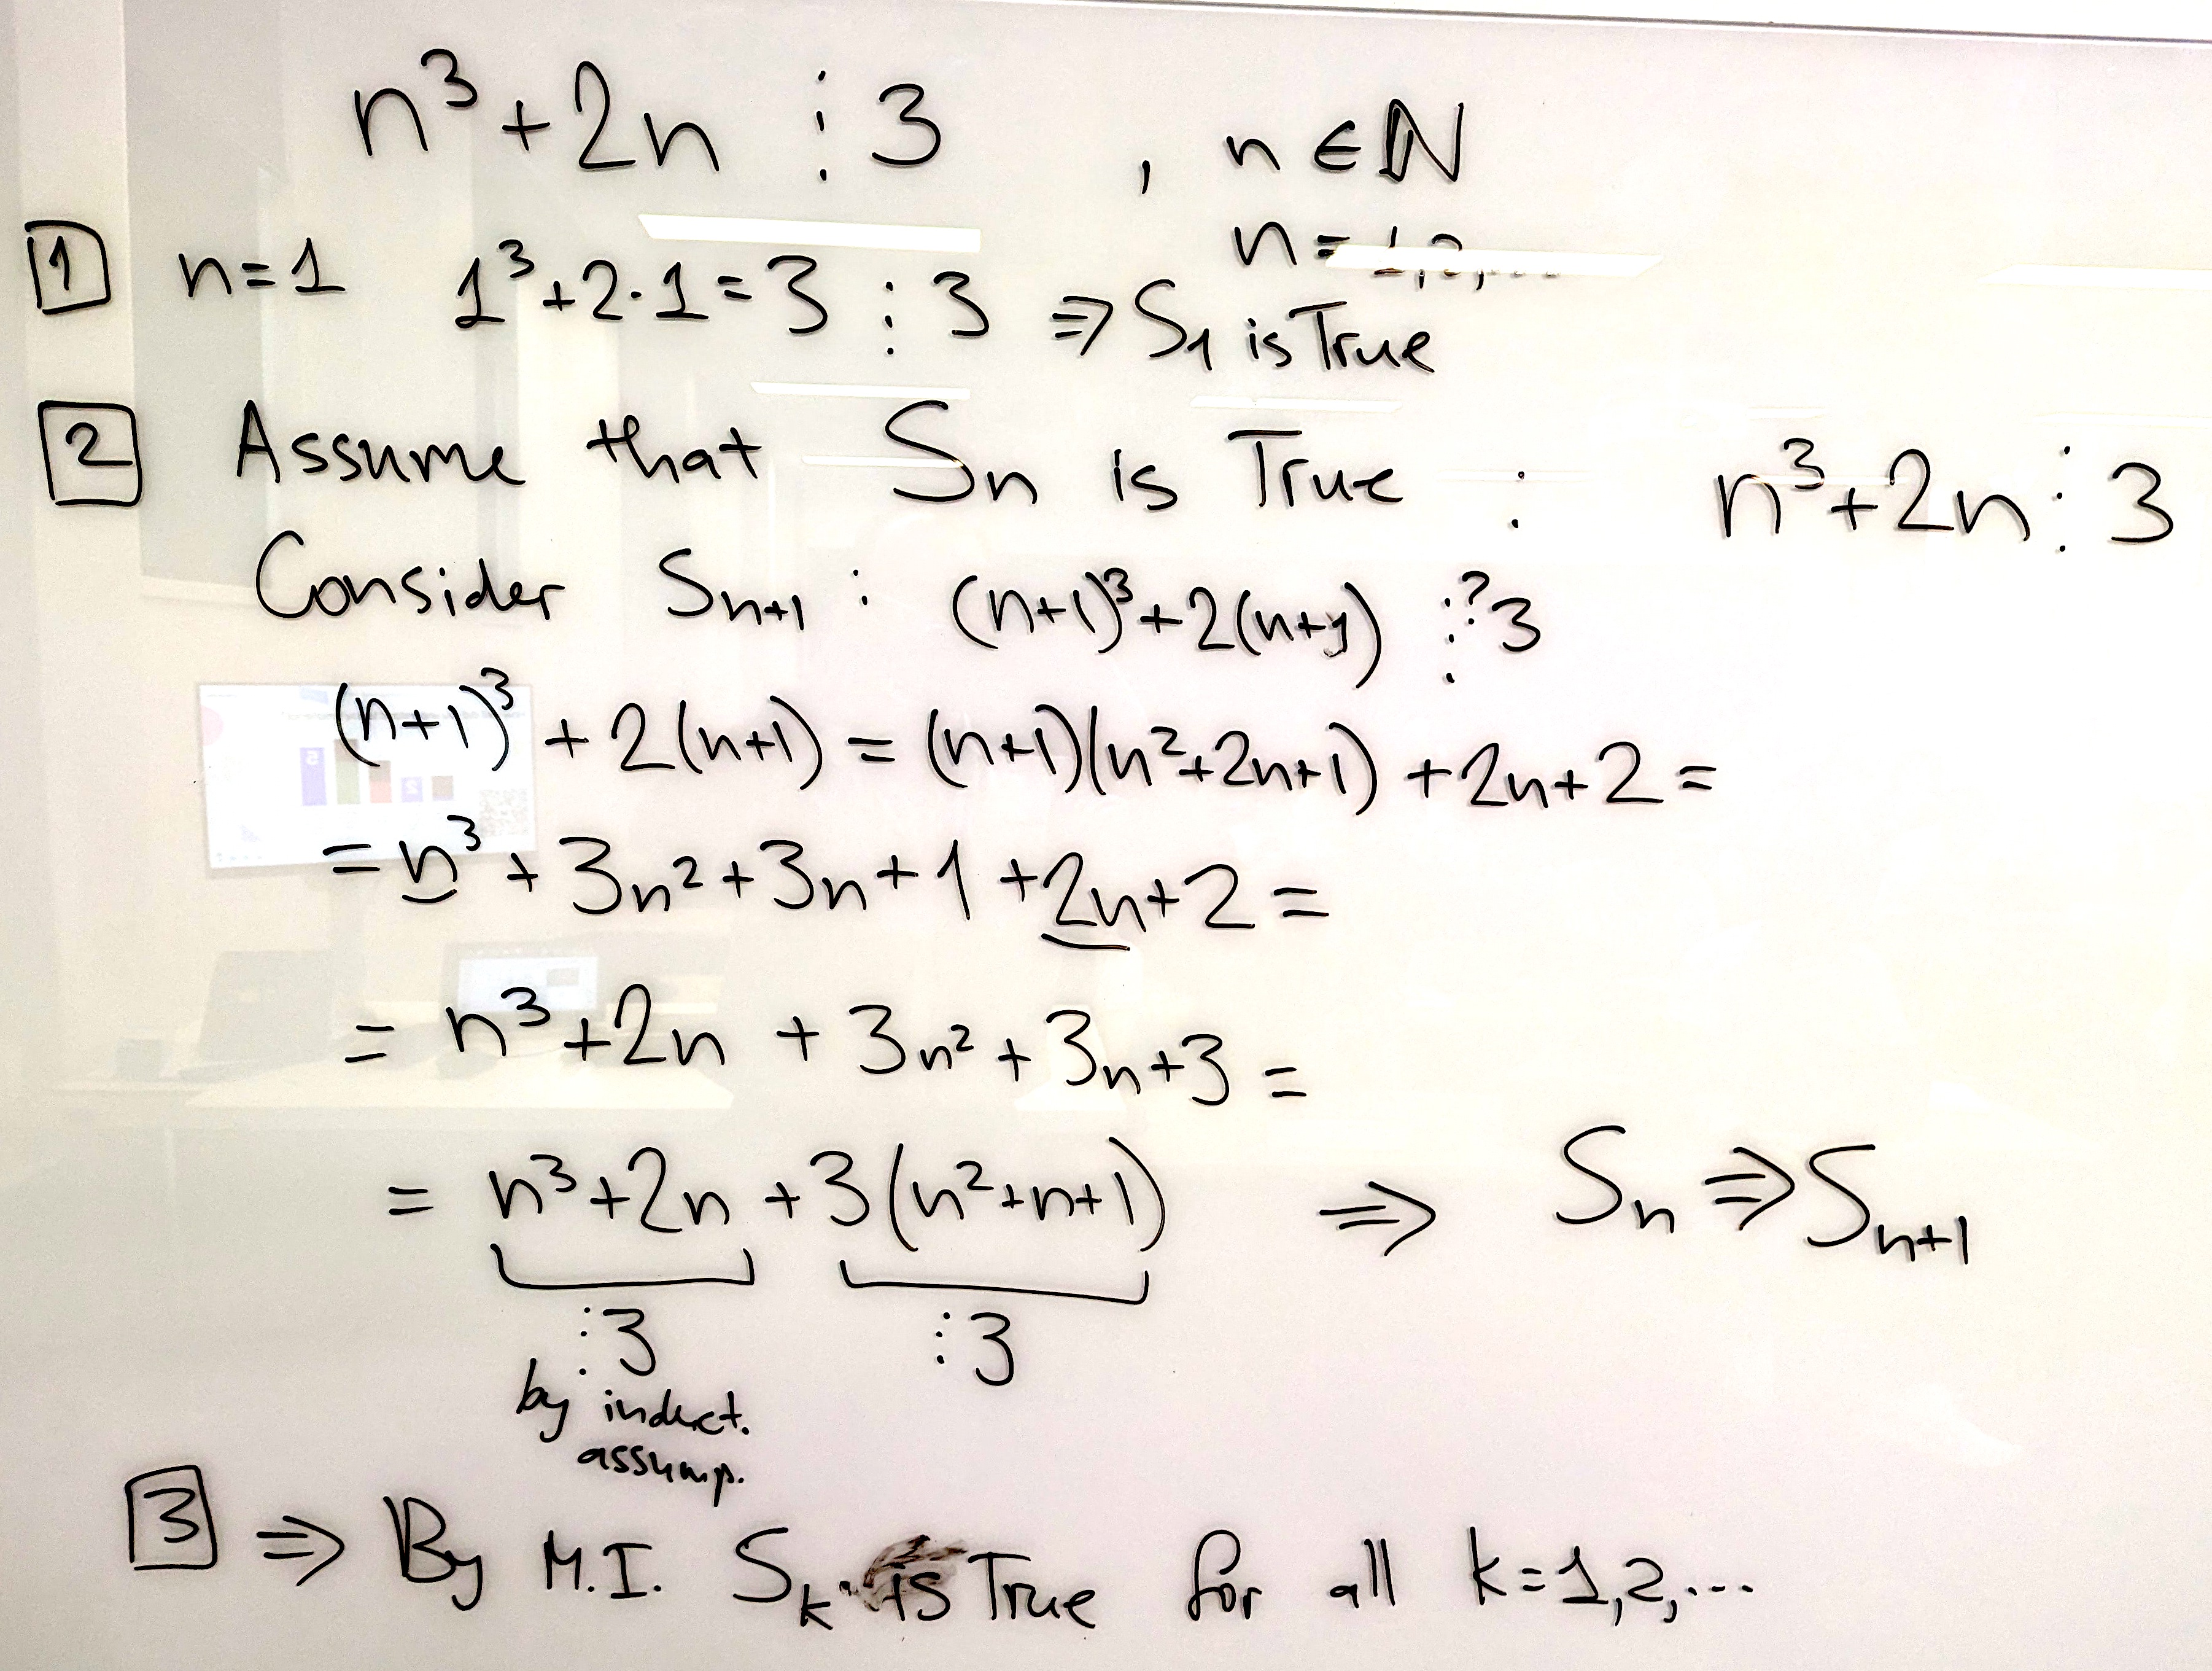 n³+2n ⋮ 3 , n ∈ ℕ
n = 1,2,...
1 n=1 1³+2·1=3 ⋮ 3 ⇒ S₁ is True
2 Assume that Sₙ is True : n³+2n ⋮ 3
Consider Sₙ₊₁ : (n+1)³+2(n+1) ⋮? 3
(n+1)³ + 2(n+1) = (n+1)(n²+2n+1) + 2n+2 =
= n³ + 3n² + 3n + 1 + 2n + 2 =
= n³+2n + 3n² + 3n+3 =
= n³+2n + 3(n²+n+1) ⇒ Sₙ ⇒ Sₙ₊₁
⋮ 3 ⋮ 3
by induct.
assump.
3 ⇒ By M.I. Sₖ is True for all k=1,2,...